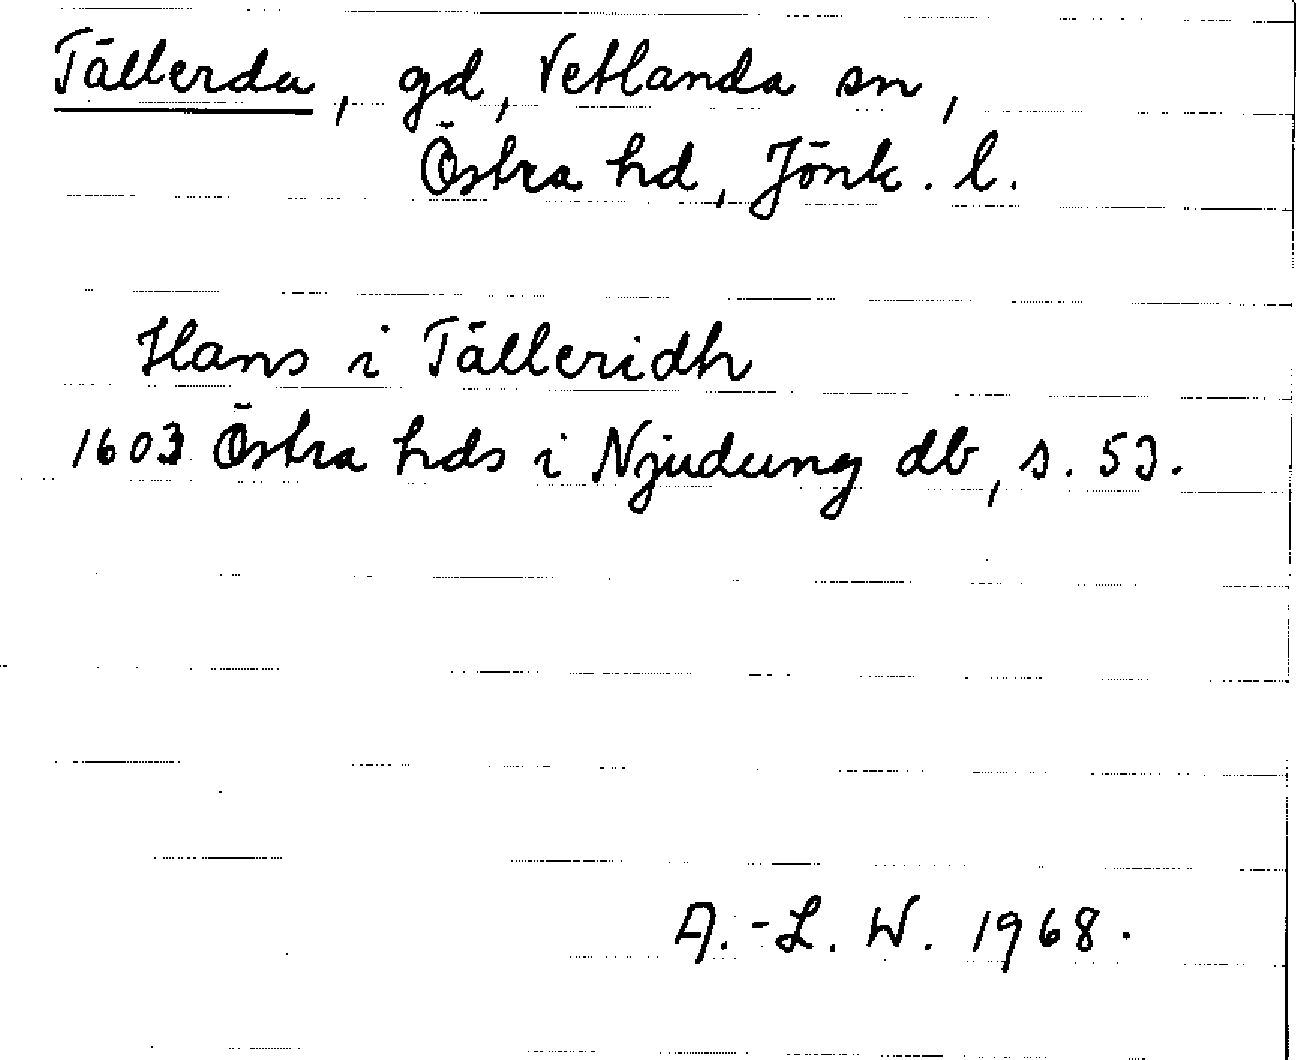 Tällerda, gd, Vetlanda sn,
Östra hd, Jönk. l.
Hans i Tälleridh
1603 Östra hds i Njudung db, s. 53.
A.-L. W. 1968.